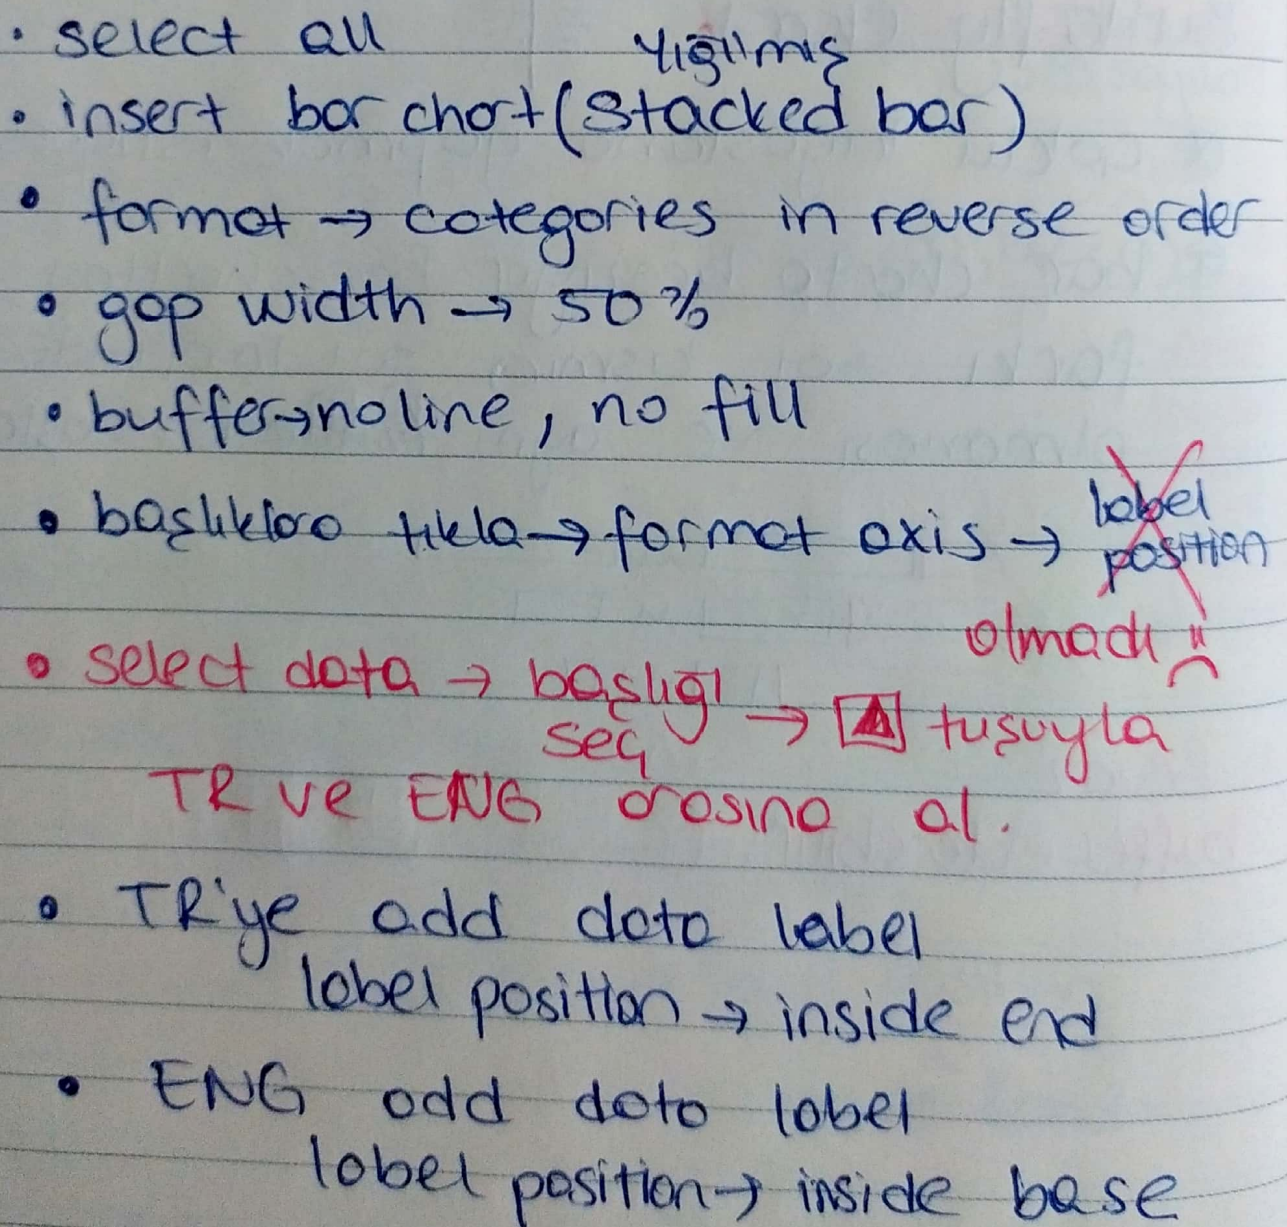 • select all
yığılmış
• insert bar chart (Stacked bar)
• format → categories in reverse order
• gap width → 50 %
• buffer → no line, no fill
• başlıklara tıkla → format axis → label position
olmadı :(
• select data → başlığı seç → ▲ tuşuyla
TR ve ENG arasına al.
• TR'ye add data label
label position → inside end
• ENG add data label
label position → inside base